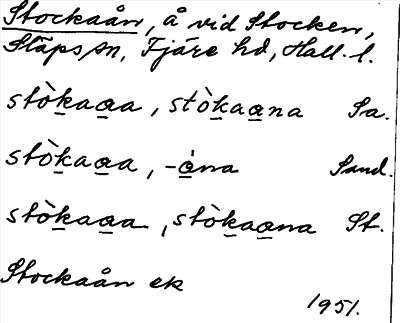 Stockaån, å vid Stocken,
Släps sn, Fjäre hd, Hall. l.
stòkaaa, stòkaana Sa.
stòkaaa, -àna Sand.
stòkaaa, stòkaana St.
Stockaån ek
1951.